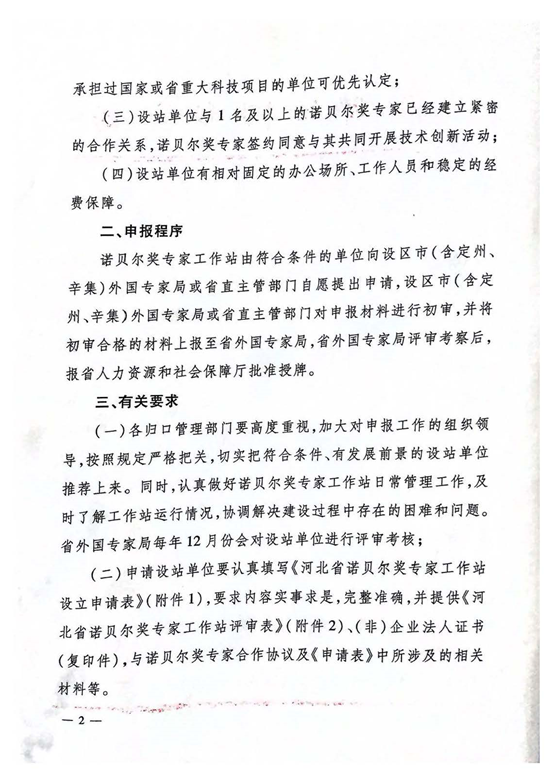 承担过国家或省重大科技项目的单位可优先认定；
（三）设站单位与1名及以上的诺贝尔奖专家已经建立紧密
的合作关系，诺贝尔奖专家签约同意与其共同开展技术创新活动；
（四）设站单位有相对固定的办公场所、工作人员和稳定的经
费保障。
二、申报程序
诺贝尔奖专家工作站由符合条件的单位向设区市（含定州、
辛集）外国专家局或省直主管部门自愿提出申请，设区市（含定
州、辛集）外国专家局或省直主管部门对申报材料进行初审，并将
初审合格的材料上报至省外国专家局，省外国专家局评审考察后，
报省人力资源和社会保障厅批准授牌。
三、有关要求
（一）各归口管理部门要高度重视，加大对申报工作的组织领
导，按照规定严格把关，切实把符合条件、有发展前景的设站单位
推荐上来。同时，认真做好诺贝尔奖专家工作站日常管理工作，及
时了解工作站运行情况，协调解决建设过程中存在的困难和问题。
省外国专家局每年12月份会对设站单位进行评审考核；
（二）申请设站单位要认真填写《河北省诺贝尔奖专家工作站
设立申请表》（附件1），要求内容实事求是，完整准确，并提供《河
北省诺贝尔奖专家工作站评审表》（附件2）、（非）企业法人证书
（复印件），与诺贝尔奖专家合作协议及《申请表》中所涉及的相关
材料等。
— 2 —